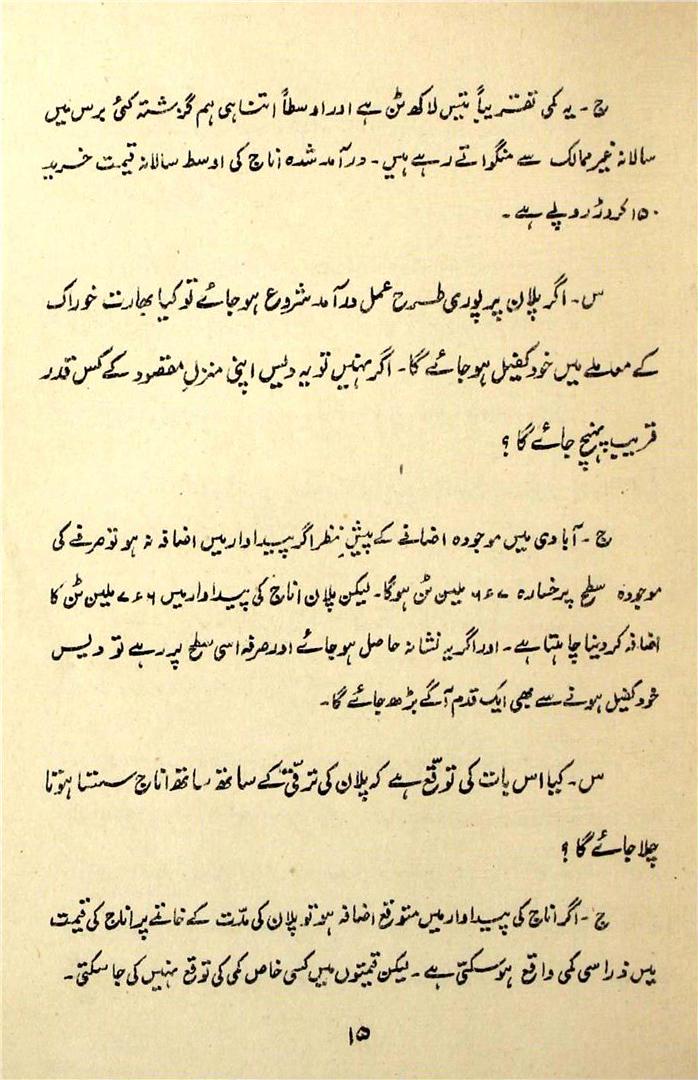 ج۔ یہ کمی تقریباً تیس لاکھ ٹن ہے اور اوسطاً اتنا ہی ہم گزشتہ کئی برس میں
سالانہ غیر ممالک سے منگواتے رہے ہیں۔ درآمد شدہ اناج کی اوسط سالانہ قیمت خرید
۱۵۰ کروڑ روپے ہے۔
س۔ اگر پلان پر پوری طرح عمل درآمد شروع ہو جائے تو کیا بھارت خوراک
کے معاملے میں خود کفیل ہو جائے گا۔ اگر نہیں تو یہ دیس اپنی منزلِ مقصود کے کس قدر
قریب پہنچ جائے گا ؟
ج۔ آبادی میں موجودہ اضافے کے پیشِ نظر اگر پیداوار میں اضافہ نہ ہو تو صرفے کی
موجودہ سطح پر خسارہ ۷ء۶ ملین ٹن ہوگا۔ لیکن پلان اناج کی پیداوار میں ۶ء۷ ملین ٹن کا
اضافہ کر دینا چاہتا ہے۔ اور اگر یہ نشانہ حاصل ہو جائے اور صرفہ اسی سطح پر رہے تو دیس
خود کفیل ہونے سے بھی ایک قدم آگے بڑھ جائے گا۔
س۔ کیا اس بات کی توقع ہے کہ پلان کی ترقی کے ساتھ ساتھ اناج سستا ہوتا
چلا جائے گا ؟
ج۔ اگر اناج کی پیداوار میں متوقع اضافہ ہو تو پلان کی مدّت کے خاتمے پر اناج کی قیمت
میں ذرا سی کمی واقع ہو سکتی ہے۔ لیکن قیمتوں میں کسی خاص کمی کی توقع نہیں کی جا سکتی۔
۱۵